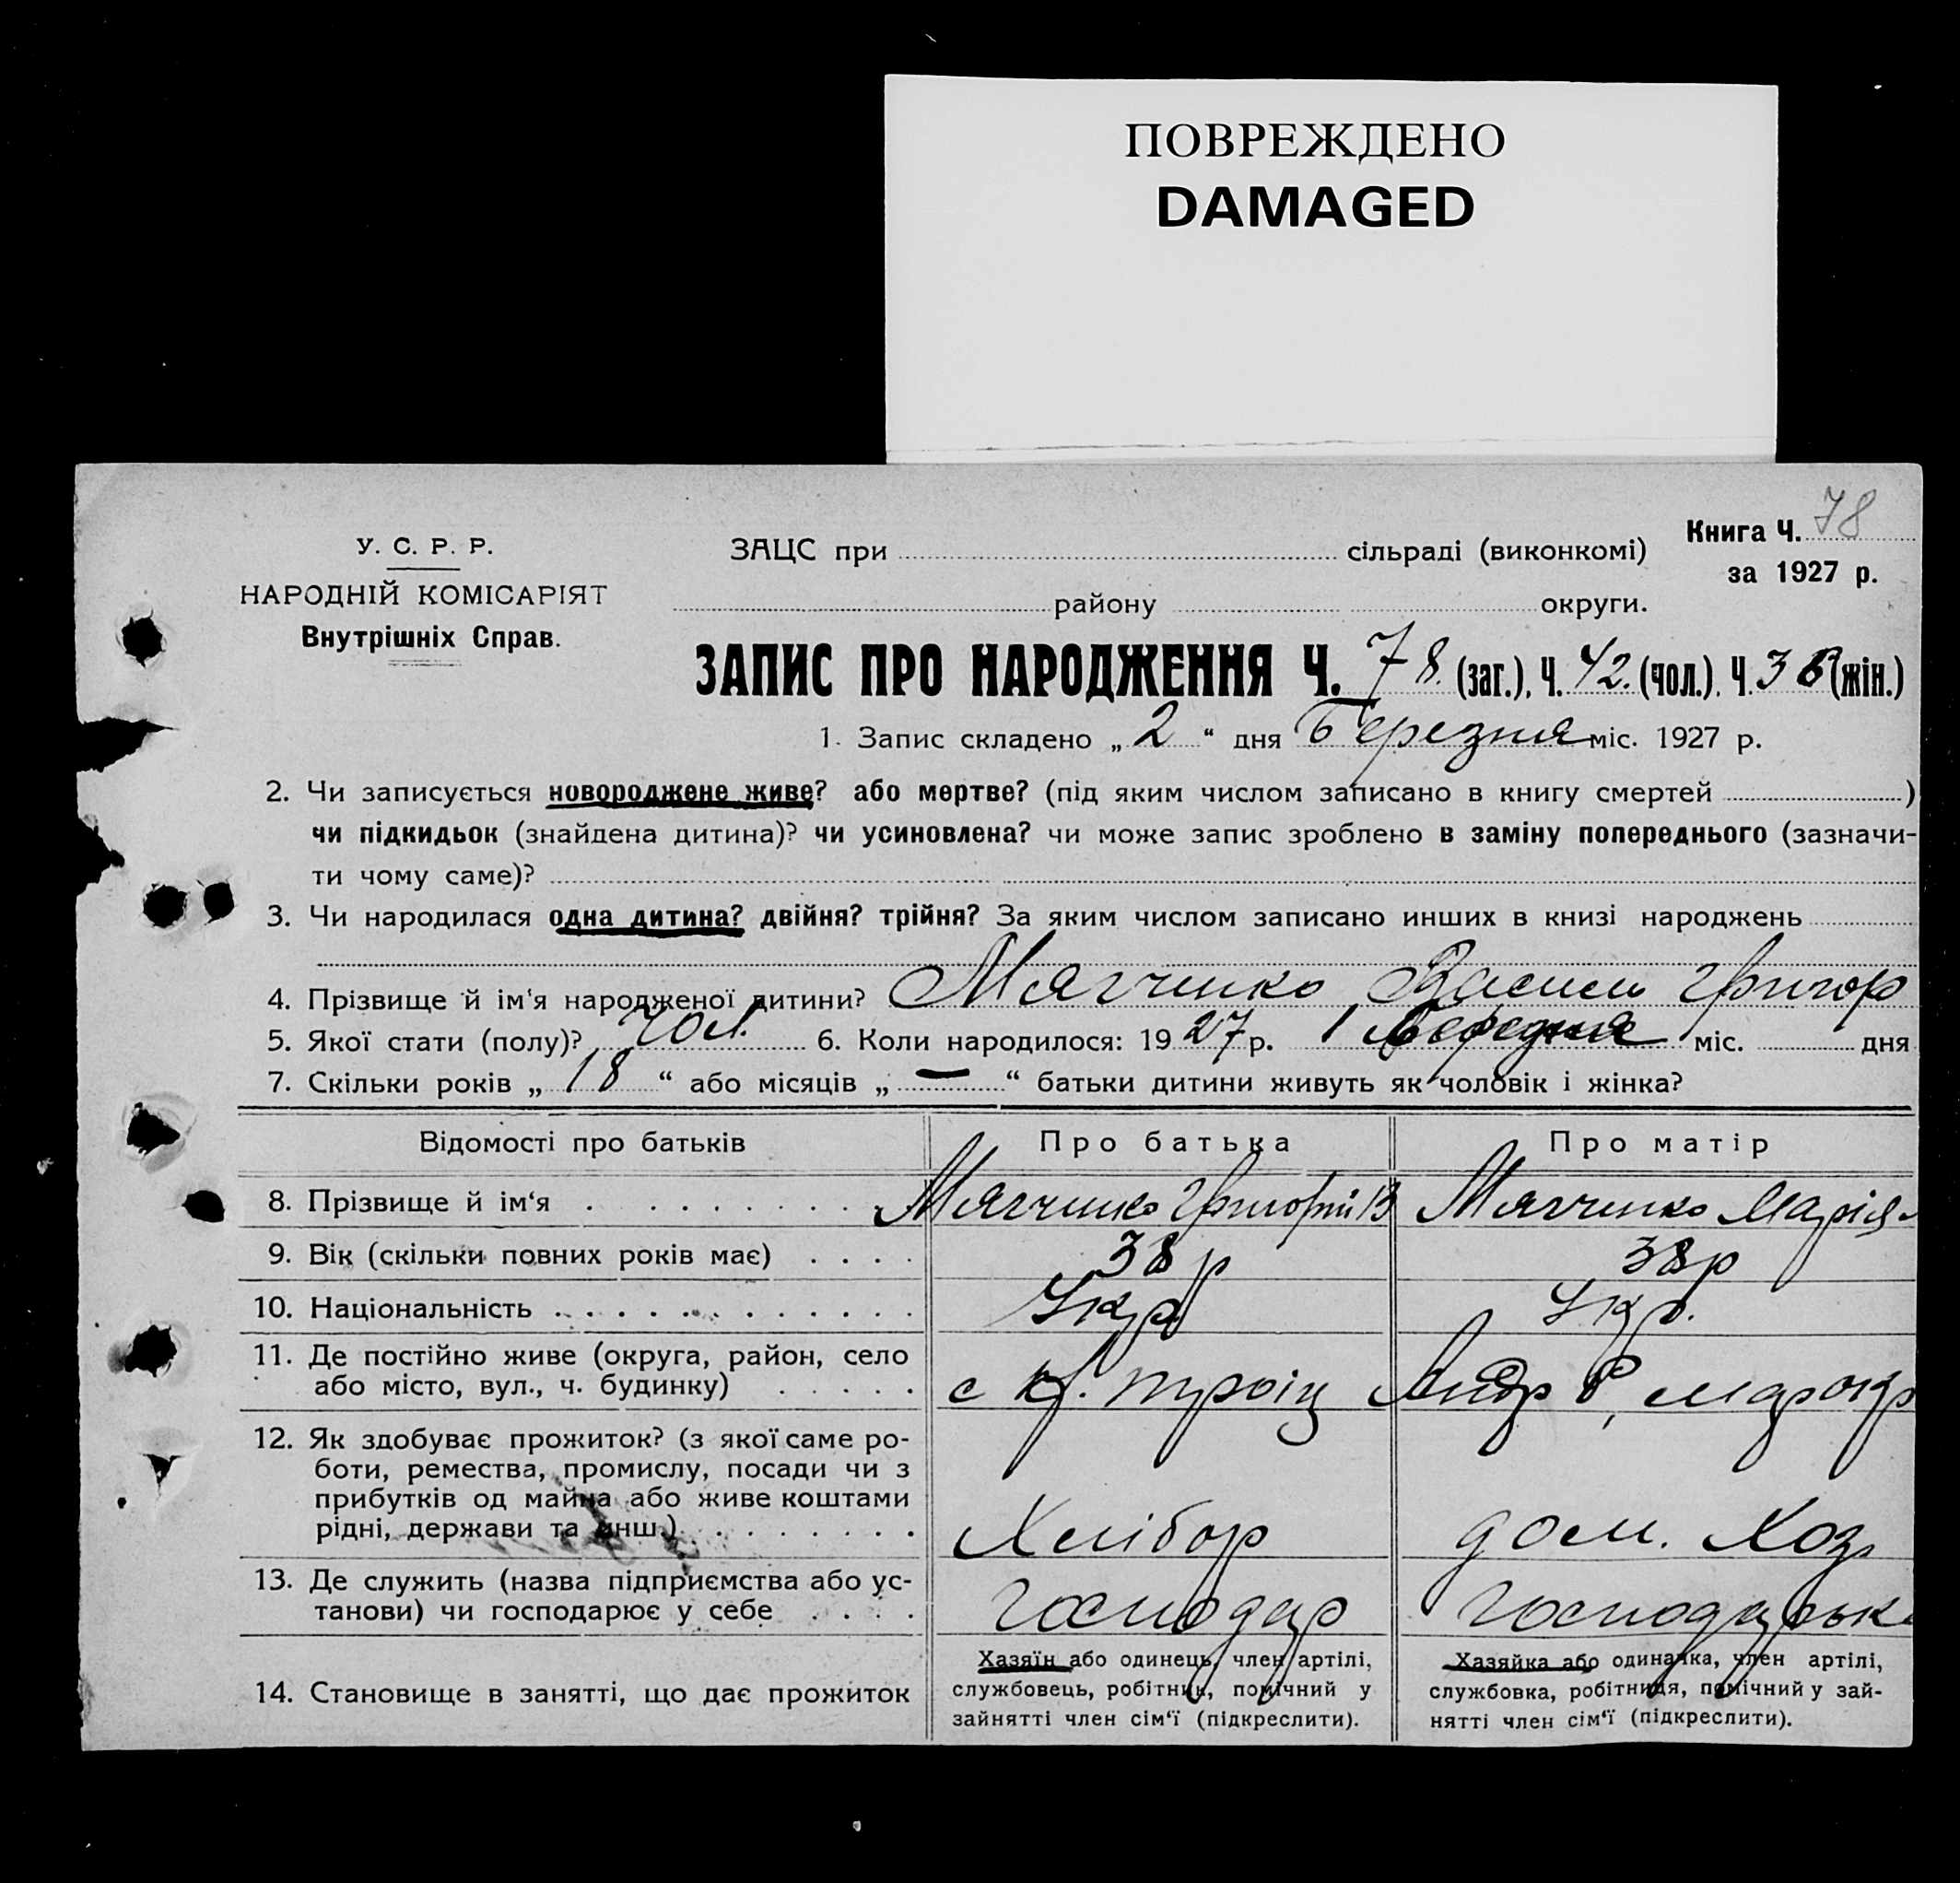 ПОВРЕЖДЕНО
DAMAGED
Книга Ч. 78
за 1927 р.
У. С. Р. Р.
НАРОДНІЙ КОМІСАРІЯТ
Внутрішніх Справ.
ЗАЦС при сільраді (виконкомі)
району округи.
ЗАПИС ПРО НАРОДЖЕННЯ Ч. 78 (заг.), Ч. 42. (чол.). Ч. 36 (жін.)
1. Запис складено „ 2 “ дня Березня міс. 1927 р.
2. Чи записується новороджене живе? або мертве? (під яким числом записано в книгу смертей )
чи підкидьок (знайдена дитина)? чи усиновлена? чи може запис зроблено в заміну попереднього (зазначи-
ти чому саме)?
3. Чи народилася одна дитина? двійня? трійня? За яким числом записано инших в книзі народжень
4. Прізвище й ім'я народженої дитини? Мягченко Васили Григор
5. Якої стати (полу)? чол. 6. Коли народилося: 1927 р. 1 Березня міс. дня
7. Скільки років „ 18 “ або місяців „ — “ батьки дитини живуть як чоловік і жінка?
Відомості про батьків Про батька Про матір
8. Прізвище й ім‘я Мягченко Григорій В Мягченко Марія
9. Вік (скільки повних років має) 38 р 38 р
10. Національність Укр Укр.
11. Де постійно живе (округа, район, село
або місто, вул., ч. будинку) с Кр. Троіц Андр Р, Маріюп
12. Як здобуває прожиток? (з якої саме ро-
боти, ремества, промислу, посади чи з
прибутків од майна або живе коштами
рідні, держави та инш.) Хлібор дом. Хоз
13. Де служить (назва підприємства або ус-
танови) чи господарює у себе Господар Господарьк
14. Становище в занятті, що дає прожиток
Хазяїн або одинець, член артілі,
службовець, робітник, помічний у
зайнятті член сім‘ї (підкреслити).
Хазяйка або одиначка, член артілі,
службовка, робітниця, помічний у зай-
нятті член сім‘ї (підкреслити).